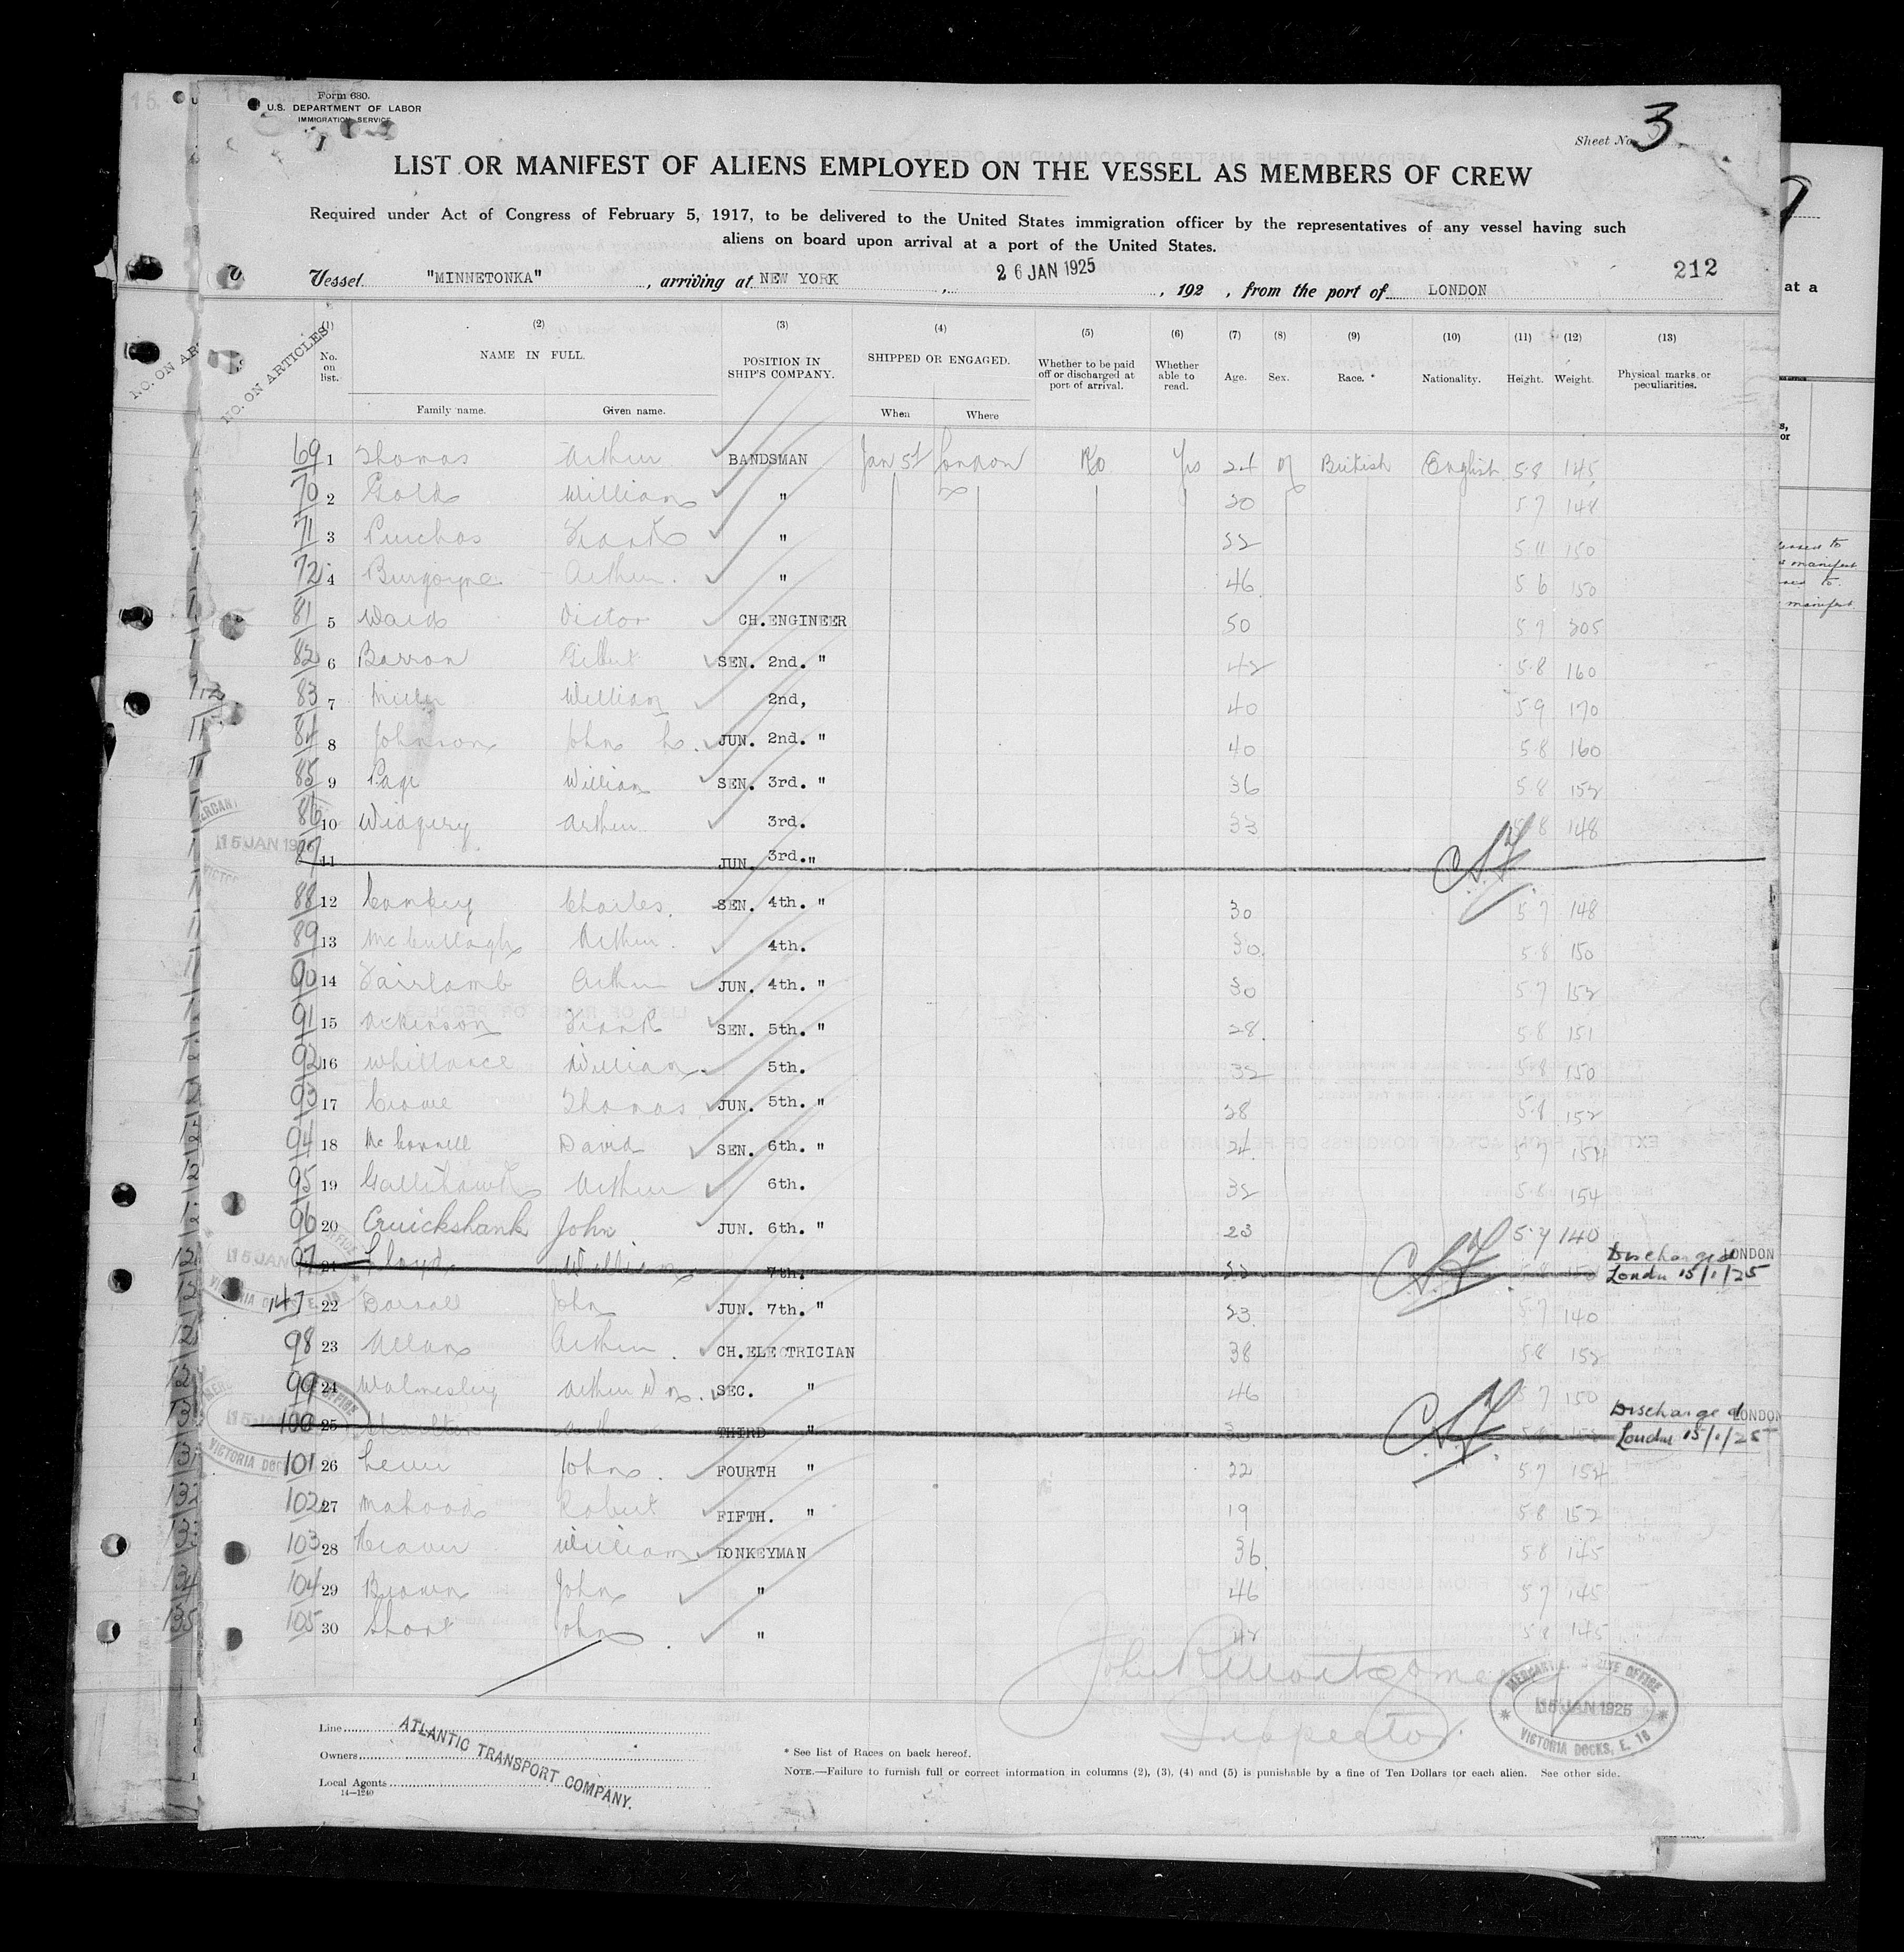 Form 680.
U.S. DEPARTMENT OF LABOR
IMMIGRATION SERVICE
Sheet No. 3
LIST OR MANIFEST OF ALIENS EMPLOYED ON THE VESSEL AS MEMBERS OF CREW
Required under Act of Congress of February 5, 1917, to be delivered to the United States immigration officer by the representatives of any vessel having such
aliens on board upon arrival at a port of the United States.
212
Vessel "MINNETONKA", arriving at NEW YORK, 26 JAN 1925, 192 , from the port of LONDON
NO. ON ARTICLES
(1) (2) (3) (4) (5) (6) (7) (8) (9) (10) (11) (12) (13)
No. on list. NAME IN FULL. POSITION IN SHIP'S COMPANY. SHIPPED OR ENGAGED. Whether to be paid off or discharged at port of arrival. Whether able to read. Age. Sex. Race. * Nationality. Height. Weight. Physical marks or peculiarities.
Family name. Given name. When Where
69 1 Thomas Arthur BANDSMAN Jan 5t London No Yes 24 M British English 5 8 145
70 2 Gold William " 20 5 7 148
71 3 Purchas Frank " 22 5 11 150
72 4 Burgoyne Arthur " 46 5 6 150
81 5 Ward Victor CH.ENGINEER 50 5 7 205
82 6 Barron Gilbert SEN. 2nd. " 42 5 8 160
83 7 Miller William 2nd, 40 5 9 170
84 8 Johnson John JUN. 2nd. " 40 5 8 160
85 9 Page William SEN. 3rd. " 36 5 8 152
86 10 Widgery Arthur 3rd. 33 5 8 148
87 11 JUN. 3rd. "
88 12 Charles SEN. 4th. " 30 5 7 148
89 13 McCullagh Arthur 4th. 30 5 8 150
90 14 Fairlamb Arthur JUN. 4th. " 30 5 7 152
91 15 Frank SEN. 5th. " 28 5 8 151
92 16 Whillance William 5th. 32 5 8 150
93 17 Crowe Thomas JUN. 5th. " 28 5 8 152
94 18 McConnell David SEN. 6th. " 24 5 7
95 19 Gallihawk Arthur 6th. 32 5 8 154
96 20 Cruickshank John JUN. 6th. " 23 5 7 140
97 21 Lloyd William 7th. Discharged LONDON
London 15/1/25
147 22 John JUN. 7th. " 23 5 7 140
98 23 Allan Arthur CH.ELECTRICIAN 38 5 8 152
99 24 Walmesley Arthur Wm. SEC. " 46 5 7 150
100 25 THIRD " Discharged LONDON
London 15/1/25
101 26 John FOURTH " 22 5 7 154
102 27 Mahood Robert FIFTH. " 19 5 8 152
103 28 William DONKEYMAN 36 5 8 145
104 29 Brown John " 46 5 7 145
105 30 Short John " 42 5 8 145
John R Montgomery
Inspector
MERCANTILE MARINE OFFICE
15 JAN 1925
VICTORIA DOCKS, E. 16
Line
Owners
Local Agents
ATLANTIC TRANSPORT COMPANY.
14—1240
* See list of Races on back hereof.
NOTE.—Failure to furnish full or correct information in columns (2), (3), (4) and (5) is punishable by a fine of Ten Dollars for each alien. See other side.